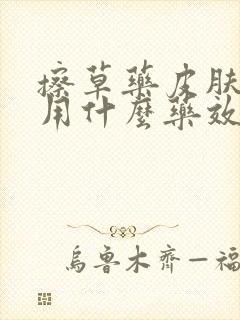 擦草藥皮膚
用什麼藥效
烏魯木齊—福